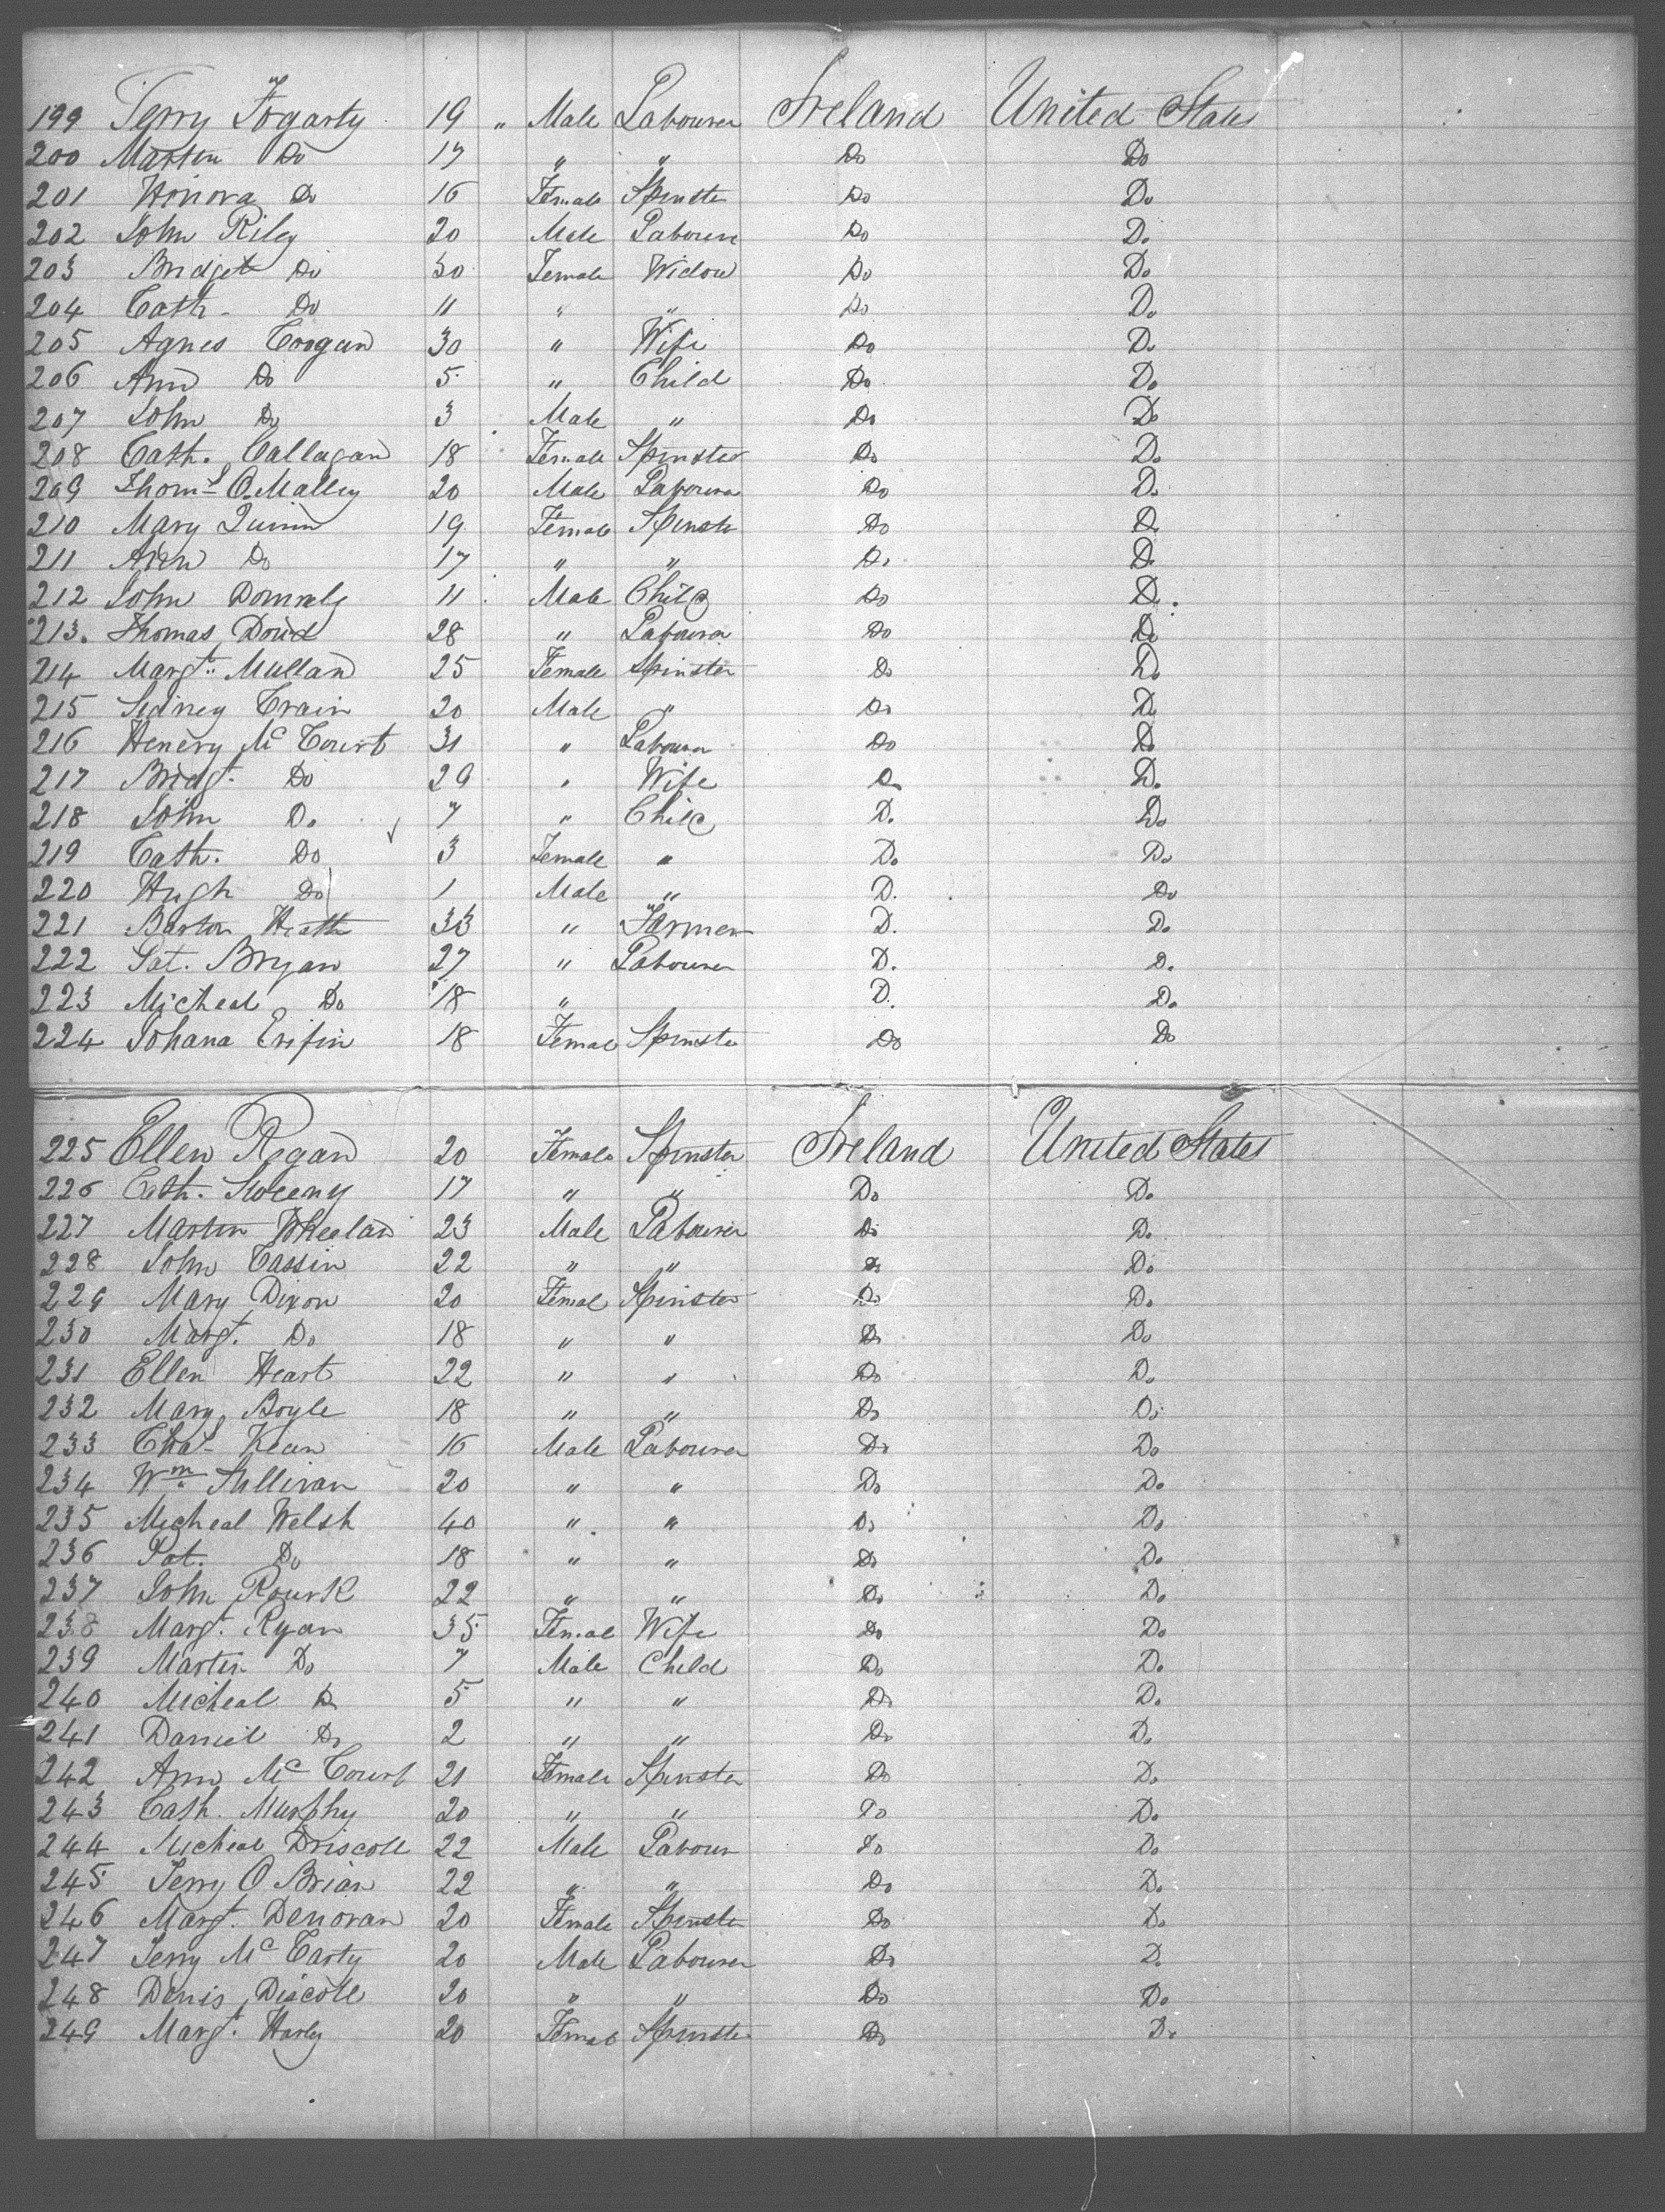 199 Terry Fogarty 19 " Male Labourer Ireland United States
200 Marten Do 17 " " Do Do
201 Honora Do 16 Female Spinster Do Do
202 John Riley 20 Male Laboure Do Do
203 Bridget Do 30 Female Widow Do Do
204 Cath. Do 11 " " Do Do
205 Agnes Coogan 30 " Wife Do Do
206 Ann Do 5 " Child Do Do
207 John Do 3 Male " Do Do
208 Cath. Callagan 18 Female Spinster Do Do
209 Thoms O.Malley 20 Male Labourer Do Do
210 Mary Quinn 19 Female Spinster Do Do
211 Ann Do 17 " " Do Do
212 John Donnely 11 Male Child Do Do
213. Thomas Doud 28 " Labourer Do Do
214 Margt. Mullan 25 Female Spinster Do Do
215 Sidney Crain 20 Male " Do Do
216 Henery Mc Court 31 " Labourer Do Do
217 Bridgt. Do 29 " Wife Do Do
218 John Do 7 " Child Do Do
219 Cath. Do 3 Female " Do Do
220 Hugh Do 1 Male " Do Do
221 Barton 33 " Farmer Do Do
222 Pat. Bryan 27 " Labourer Do Do
223 Micheal Do 18 " Do Do
224 Johana 18 Female Spinster Do Do
225 Ellen Regan 20 Female Spinster Ireland United States
226 Cath. Sweeny 17 " " Do Do
227 Marten Wheelan 23 Male Labourer Do Do
228 John Cassin 22 " " Do Do
229 Mary Dixon 20 Femal Spinster Do Do
230 Margt. Do 18 " " Do Do
231 Ellen Heart 22 " " Do Do
232 Mary Boyle 18 " " Do Do
233 Chas Kean 16 Male Labourer Do Do
234 Wm. Sullivan 20 " " Do Do
235 Micheal Welsh 40 " " Do Do
236 Pat. Do 18 " " Do Do
237 John Rourk 22 " " Do Do
238 Margt. Ryan 35 Femal Wife Do Do
239 Marten Do 7 Male Child Do Do
240 Micheal Do 5 " " Do Do
241 Daniel Do 2 " " Do Do
242 Ann Mc Court 21 Female Spinster Do Do
243 Cath. Murphy 20 " " Do Do
244 Micheal Driscoll 22 Male Labour Do Do
245 Jerry O Brian 22 " " Do Do
246 Margt. Denovan 20 Female Spinster Do Do
247 Jerry Mc Carty 20 Male Labourer Do Do
248 Denis Discoll 20 " " Do Do
249 Margt. Harly 20 Femal Spinster Do Do